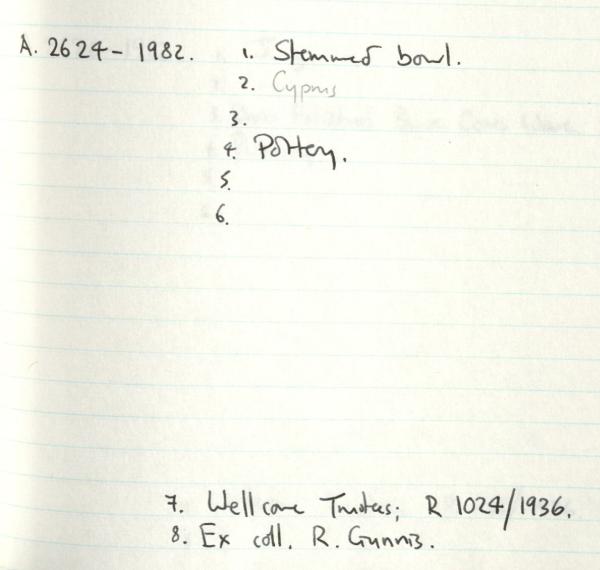 A. 2624-1982. 1. Stemmed bowl.
2. Cyprus
3.
4. Pottery.
5.
6.
7. Wellcome Trustees; R 1024/1936.
8. Ex coll. R. Gunnis.